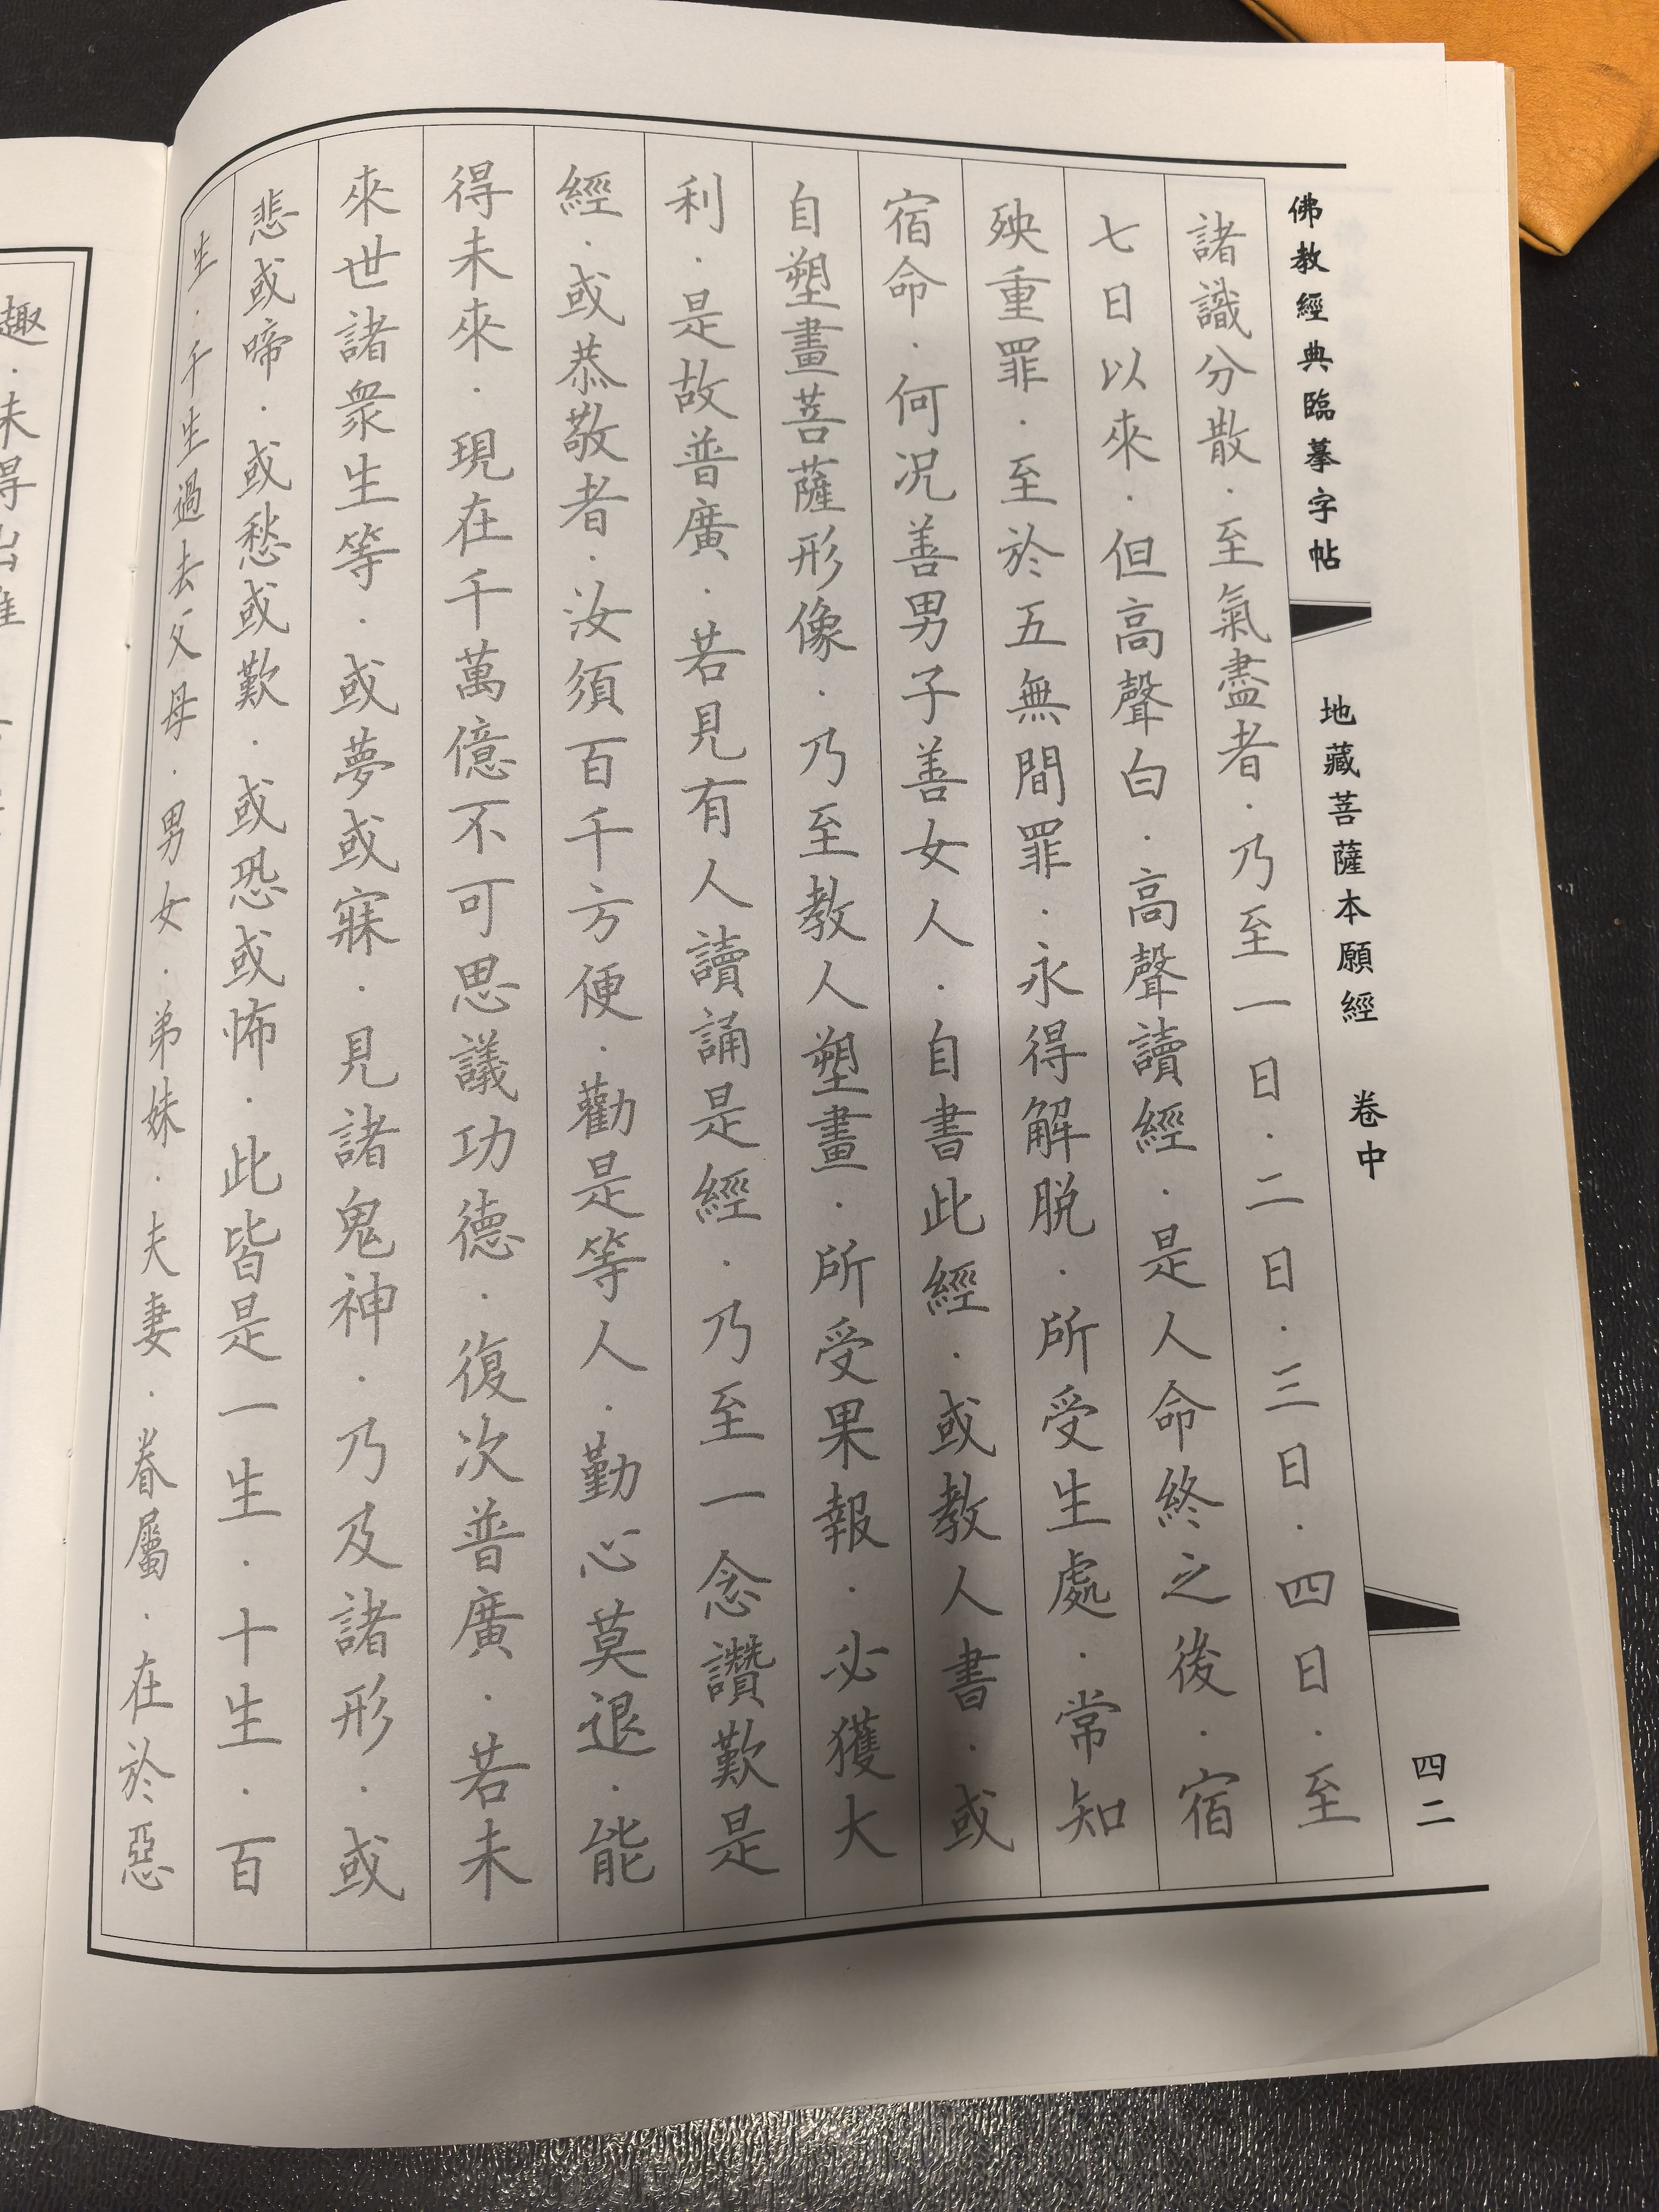 佛教經典臨摹字帖
地藏菩薩本願經 卷中
四二
諸識分散．至氣盡者．乃至一日．二日．三日．四日．至
七日以來．但高聲白．高聲讀經．是人命終之後．宿
殃重罪．至於五無間罪．永得解脫．所受生處．常知
宿命．何況善男子善女人．自書此經．或教人書．或
自塑畫菩薩形像．乃至教人塑畫．所受果報．必獲大
利．是故普廣．若見有人讀誦是經．乃至一念讚歎是
經．或恭敬者．汝須百千方便．勸是等人．勤心莫退．能
得未來．現在千萬億不可思議功德．復次普廣．若未
來世諸眾生等．或夢或寐．見諸鬼神．乃及諸形．或
悲或啼．或愁或歎．或恐或怖．此皆是一生．十生．百
生．千生過去父母．男女．弟妹．夫妻．眷屬．在於惡
趣．未得出離